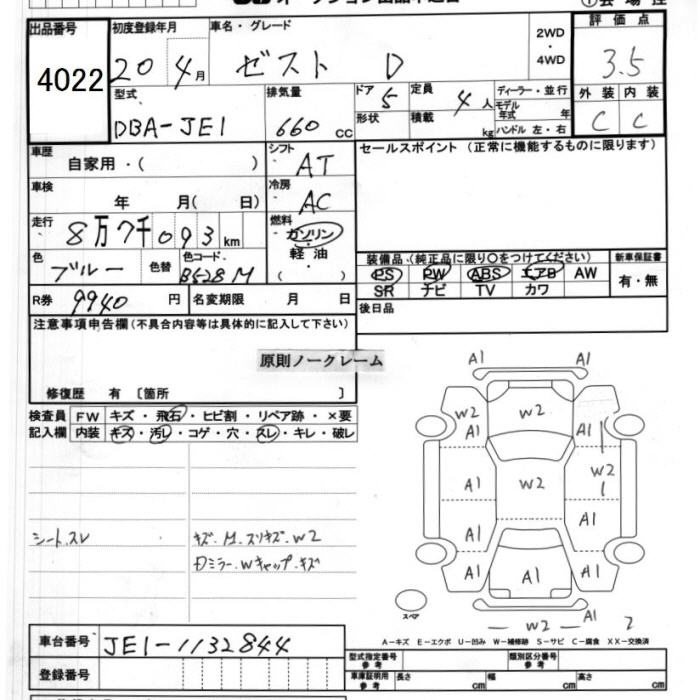 出品番号
4022
初度登録年月
20 4月
車名・グレード
ゼスト D
2WD
・
4WD
評価点
3.5
型式
DBA-JE1
排気量
660 cc
ドア 5
形状
定員 4人
積載 kg
ディーラー・並行
モデル年式 年
ハンドル 左・右
外装 内装
C C
車歴
自家用・( )
シフト AT
セールスポイント (正常に機能するものに限ります)
車検
年 月( 日)
冷房 AC
走行
8万7千093km
燃料
ガソリン
軽油
色 ブルー
色替
色コード B528M
装備品 (純正品に限り○をつけてください)
新車保証書
PS PW ABS エアB AW
SR ナビ TV カワ
有・無
R券 9940円
名変期限 月 日
後日品
注意事項申告欄(不具合内容等は具体的に記入して下さい)
原則ノークレーム
修復歴 有 〔箇所 〕
検査員記入欄
FW キズ・飛石・ヒビ割・リペア跡・×要
内装 キズ・汚レ・コゲ・穴・スレ・キレ・破レ
シート.スレ
キズ.M.スリキズ.W2
Dミラー.Wキャップ.キズ
A1 A1
W2 W2 A1
A1
A1 W2 W2
A1 A1
A1 A1 A1
W2 A1 2
スペア
A-キズ E-エクボ U-凹み W-補修跡 S-サビ C-腐食 XX-交換済
車台番号 JE1-1132844
登録番号
型式指定番号
参考
類別区分番号
参考
車庫証明用
参考
長さ cm
幅 cm
高さ cm